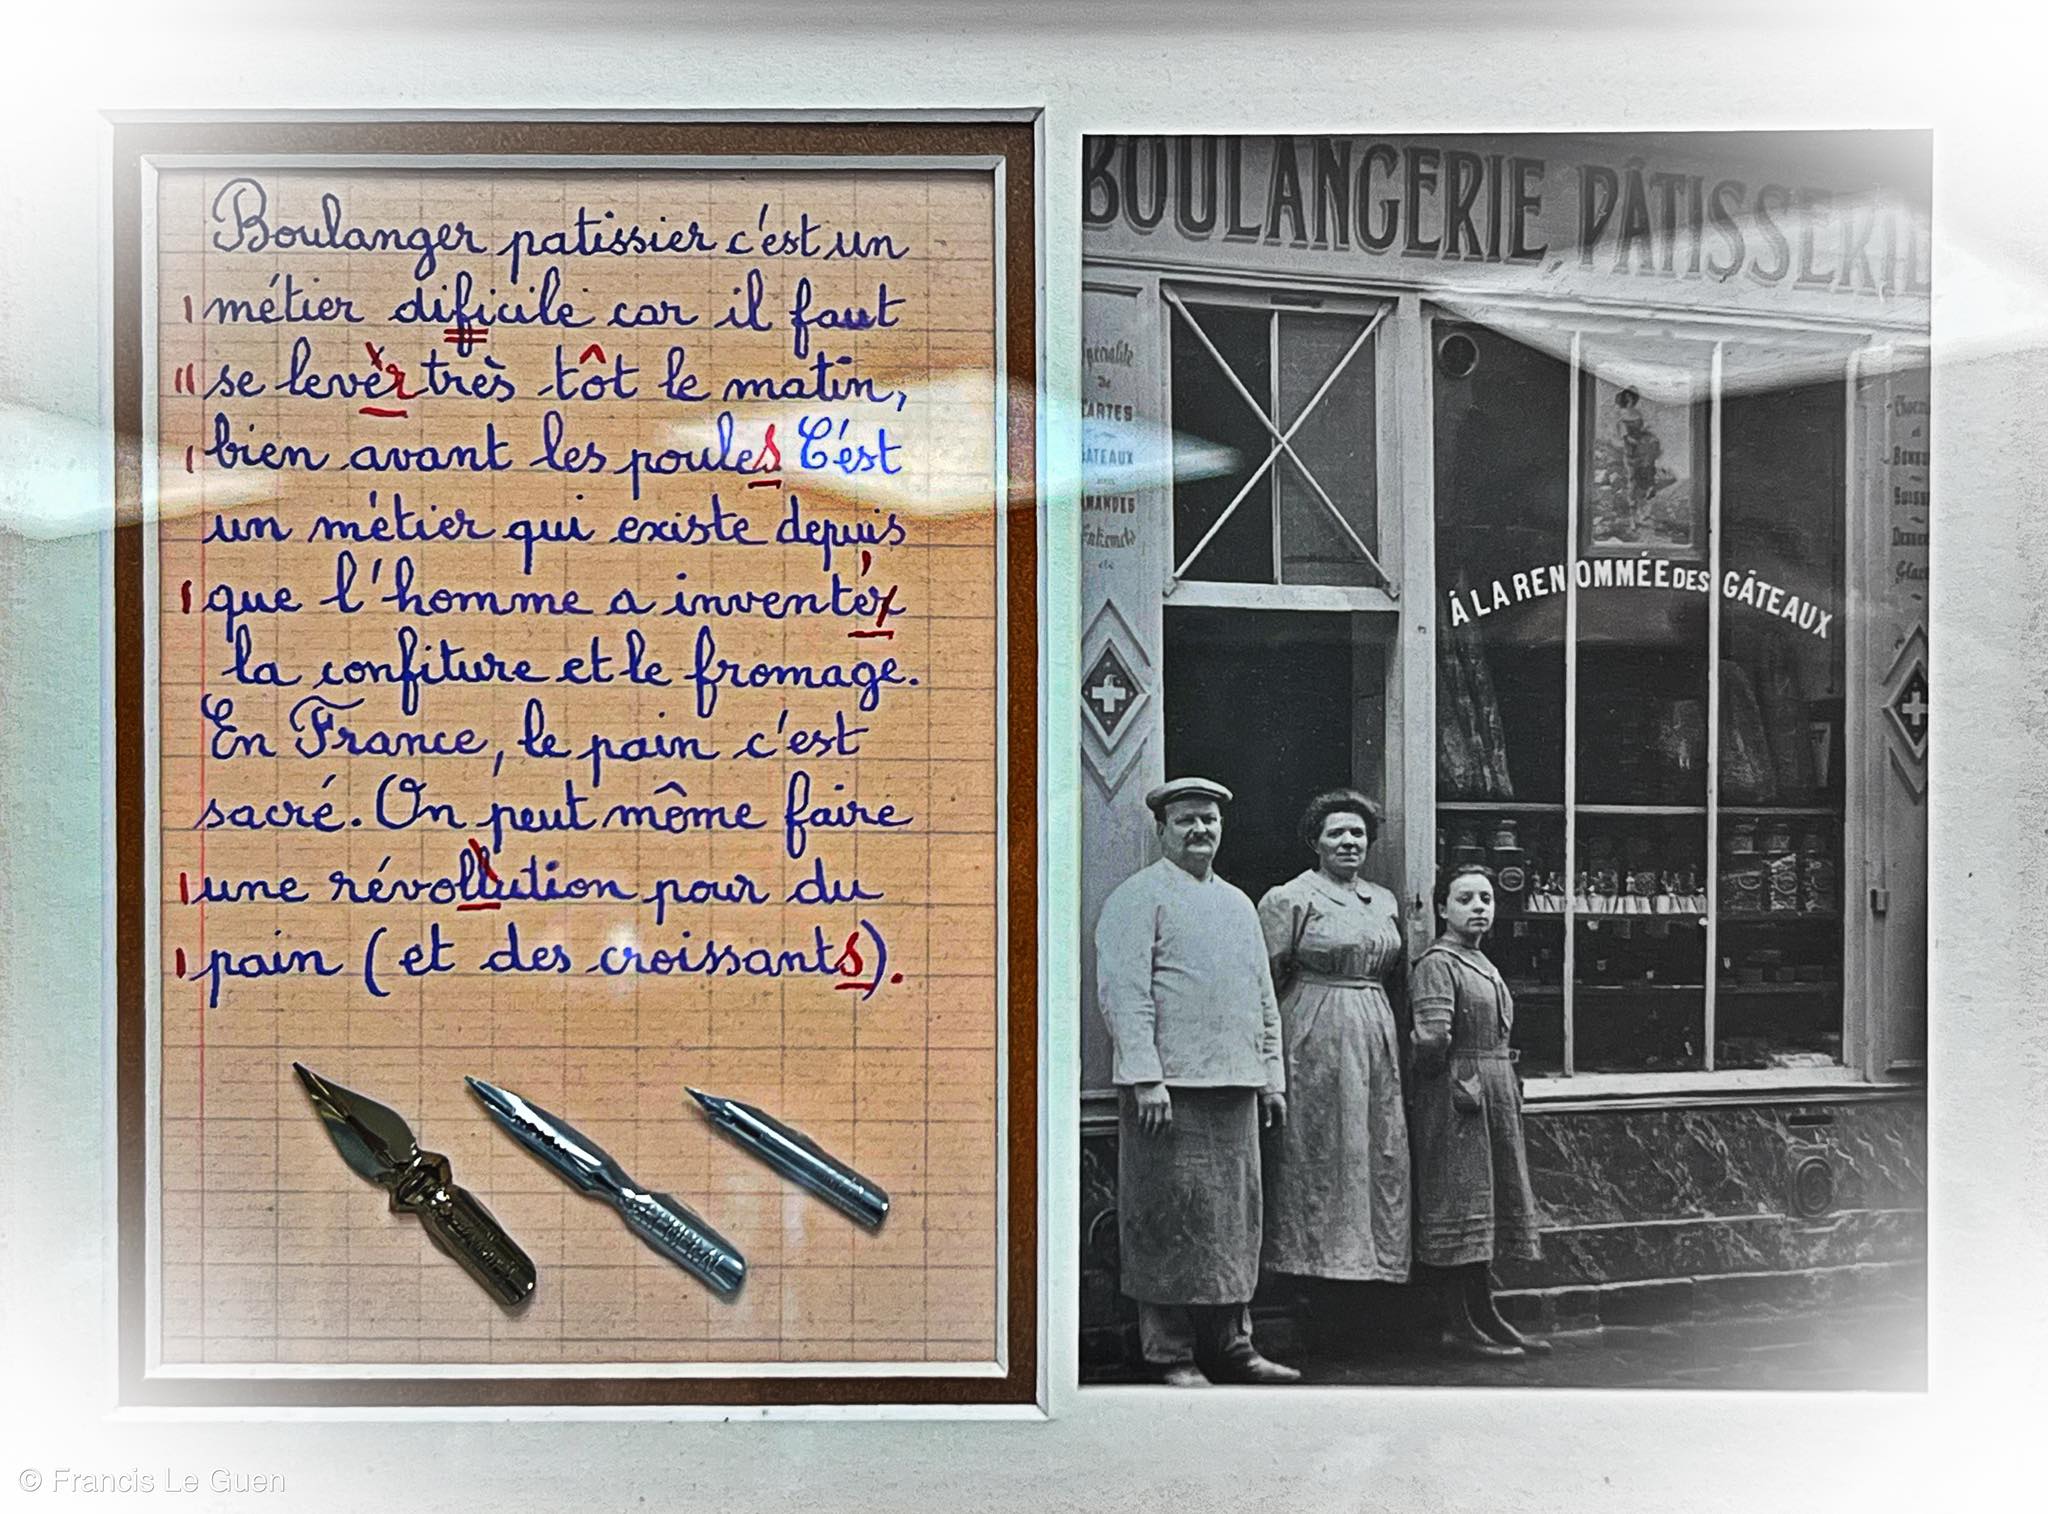 Boulanger patissier c'est un
métier dificile car il faut
se levèr très tôt le matin,
bien avant les poules C'est
un métier qui existe depuis
que l'homme a inventér
la confiture et le fromage.
En France, le pain c'est
sacré. On peut môme faire
une révollution pour du
pain (et des croissants).
BOULANGERIE, PÂTISSERIE
Spécialité
de
TARTES
GATEAUX
AMANDES
À LA RENOMMÉE DES GÂTEAUX
© Francis Le Guen